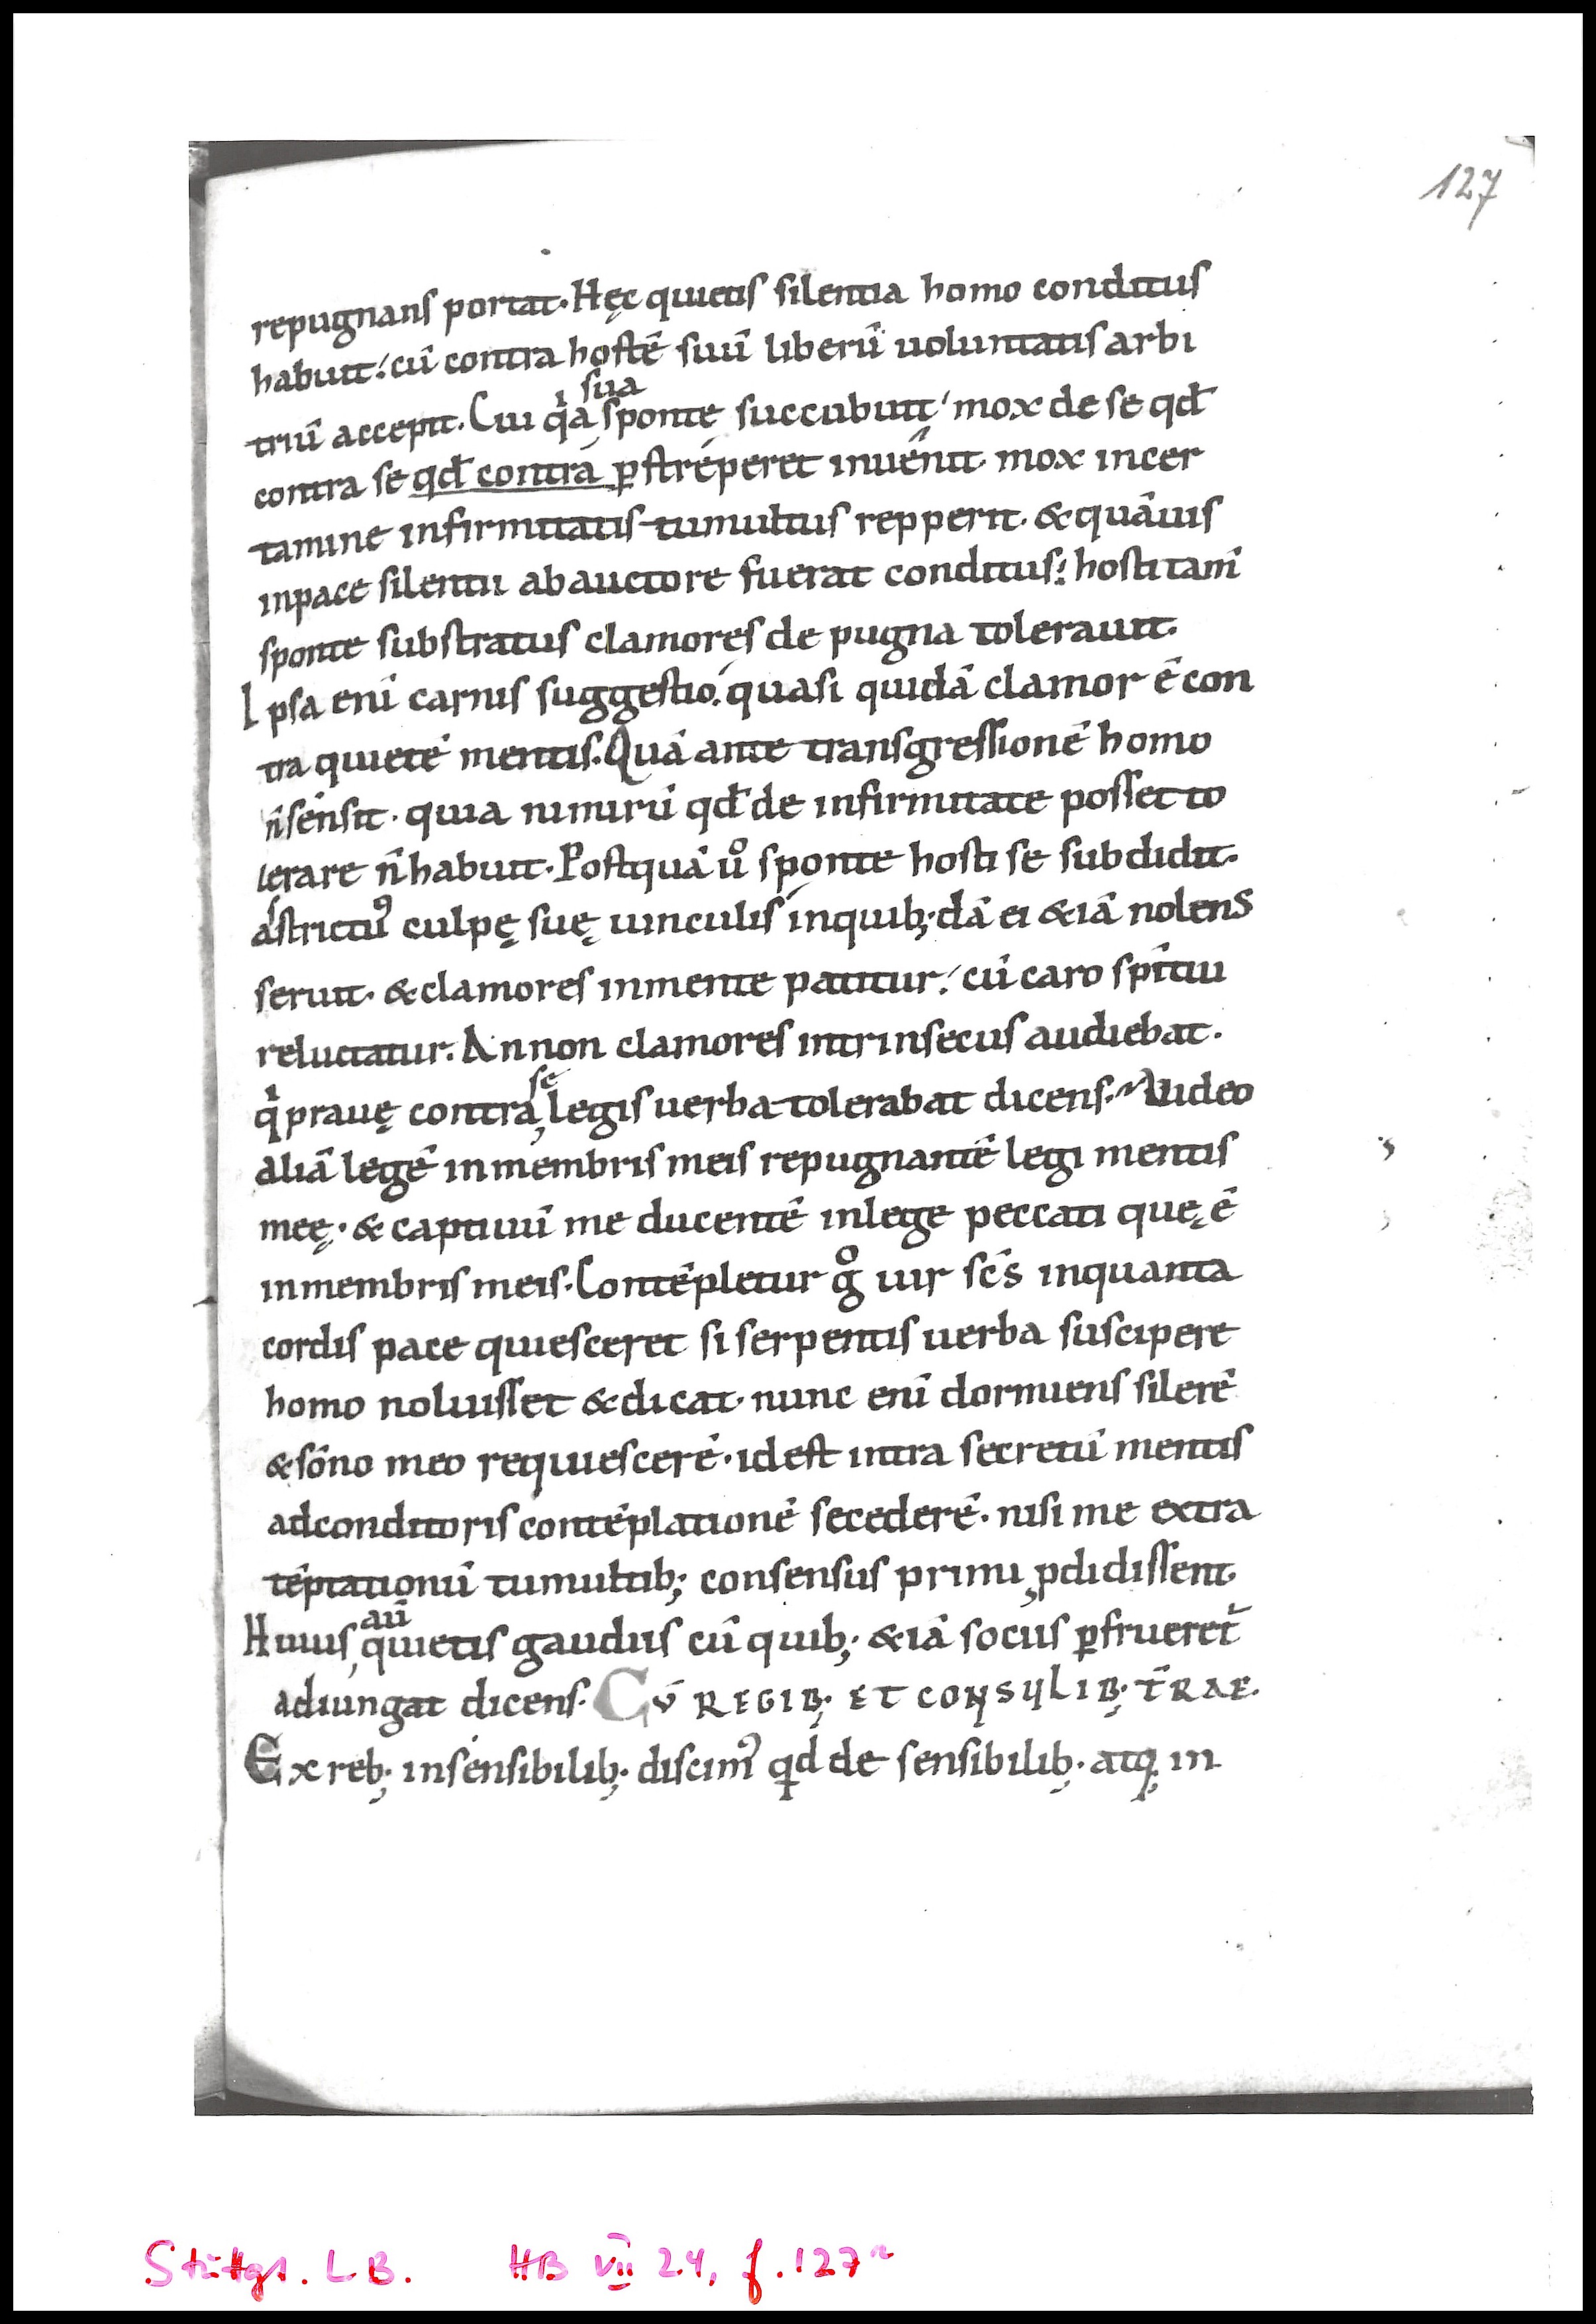 127
repugnans portat. Hęc quietis silentia homo conditus
habuit: cū contra hostē suū liberū uoluntatis arbi
sua
triū accepit. Cui q̇a sponte succubuit, mox de se qđ
contra se qđ contra ꝑstreperet inuenit. mox incer
tamine infirmitatis tumultus repperit. & quāuis
inpace silentii abauctore fuerat conditus: hosti tam̄
sponte substratus clamores de pugna tolerauit.
Ipsa eni̅ carnis suggestio, quasi quidā clamor ē con
tra quietē mentis. Quā ante transgressionē homo
n̄ sensit. quia nimirū qđ de infirmitate posset to
lerare n̄ habuit. Postquā ů sponte hosti se subdidit.
astrictꝰ culpę suę uinculis inquib; dā ei & iā nolens
seruit. & clamores inmente patitur: cū caro sp̄itui
reluctatur. An non clamores intrinsecus audiebat.
se
q̇ prauę contra, legis uerba tolerabat dicens. Uideo
aliā legē inmembris meis repugnantē legi mentis
meę. & captiuū me ducentē inlege peccati quę ē
inmembris meis. Contēpletur g̊ uir sc̄s inquanta
cordis pace quiesceret si serpentis uerba suscipere
homo noluisset & dicat. nunc eni̅ dormiens silerē
& sōno meo requiescerē. id est intra secretū mentis
adconditoris contēplationē secederē. nisi me extra
tēptationū tumultib; consensus primi ꝓdidissent.
aū
Huius, quietis gaudiis cū quib; & iā socius ꝑfrueret᷑
adiungat dicens. CV̄ REGIB; ET CONSVLIB; T̄RAE.
Ex reb; insensibilib; discimꝰ qđ de sensibilib; atq; in
Stuttgt. LB. HB VII 24, f. 127r